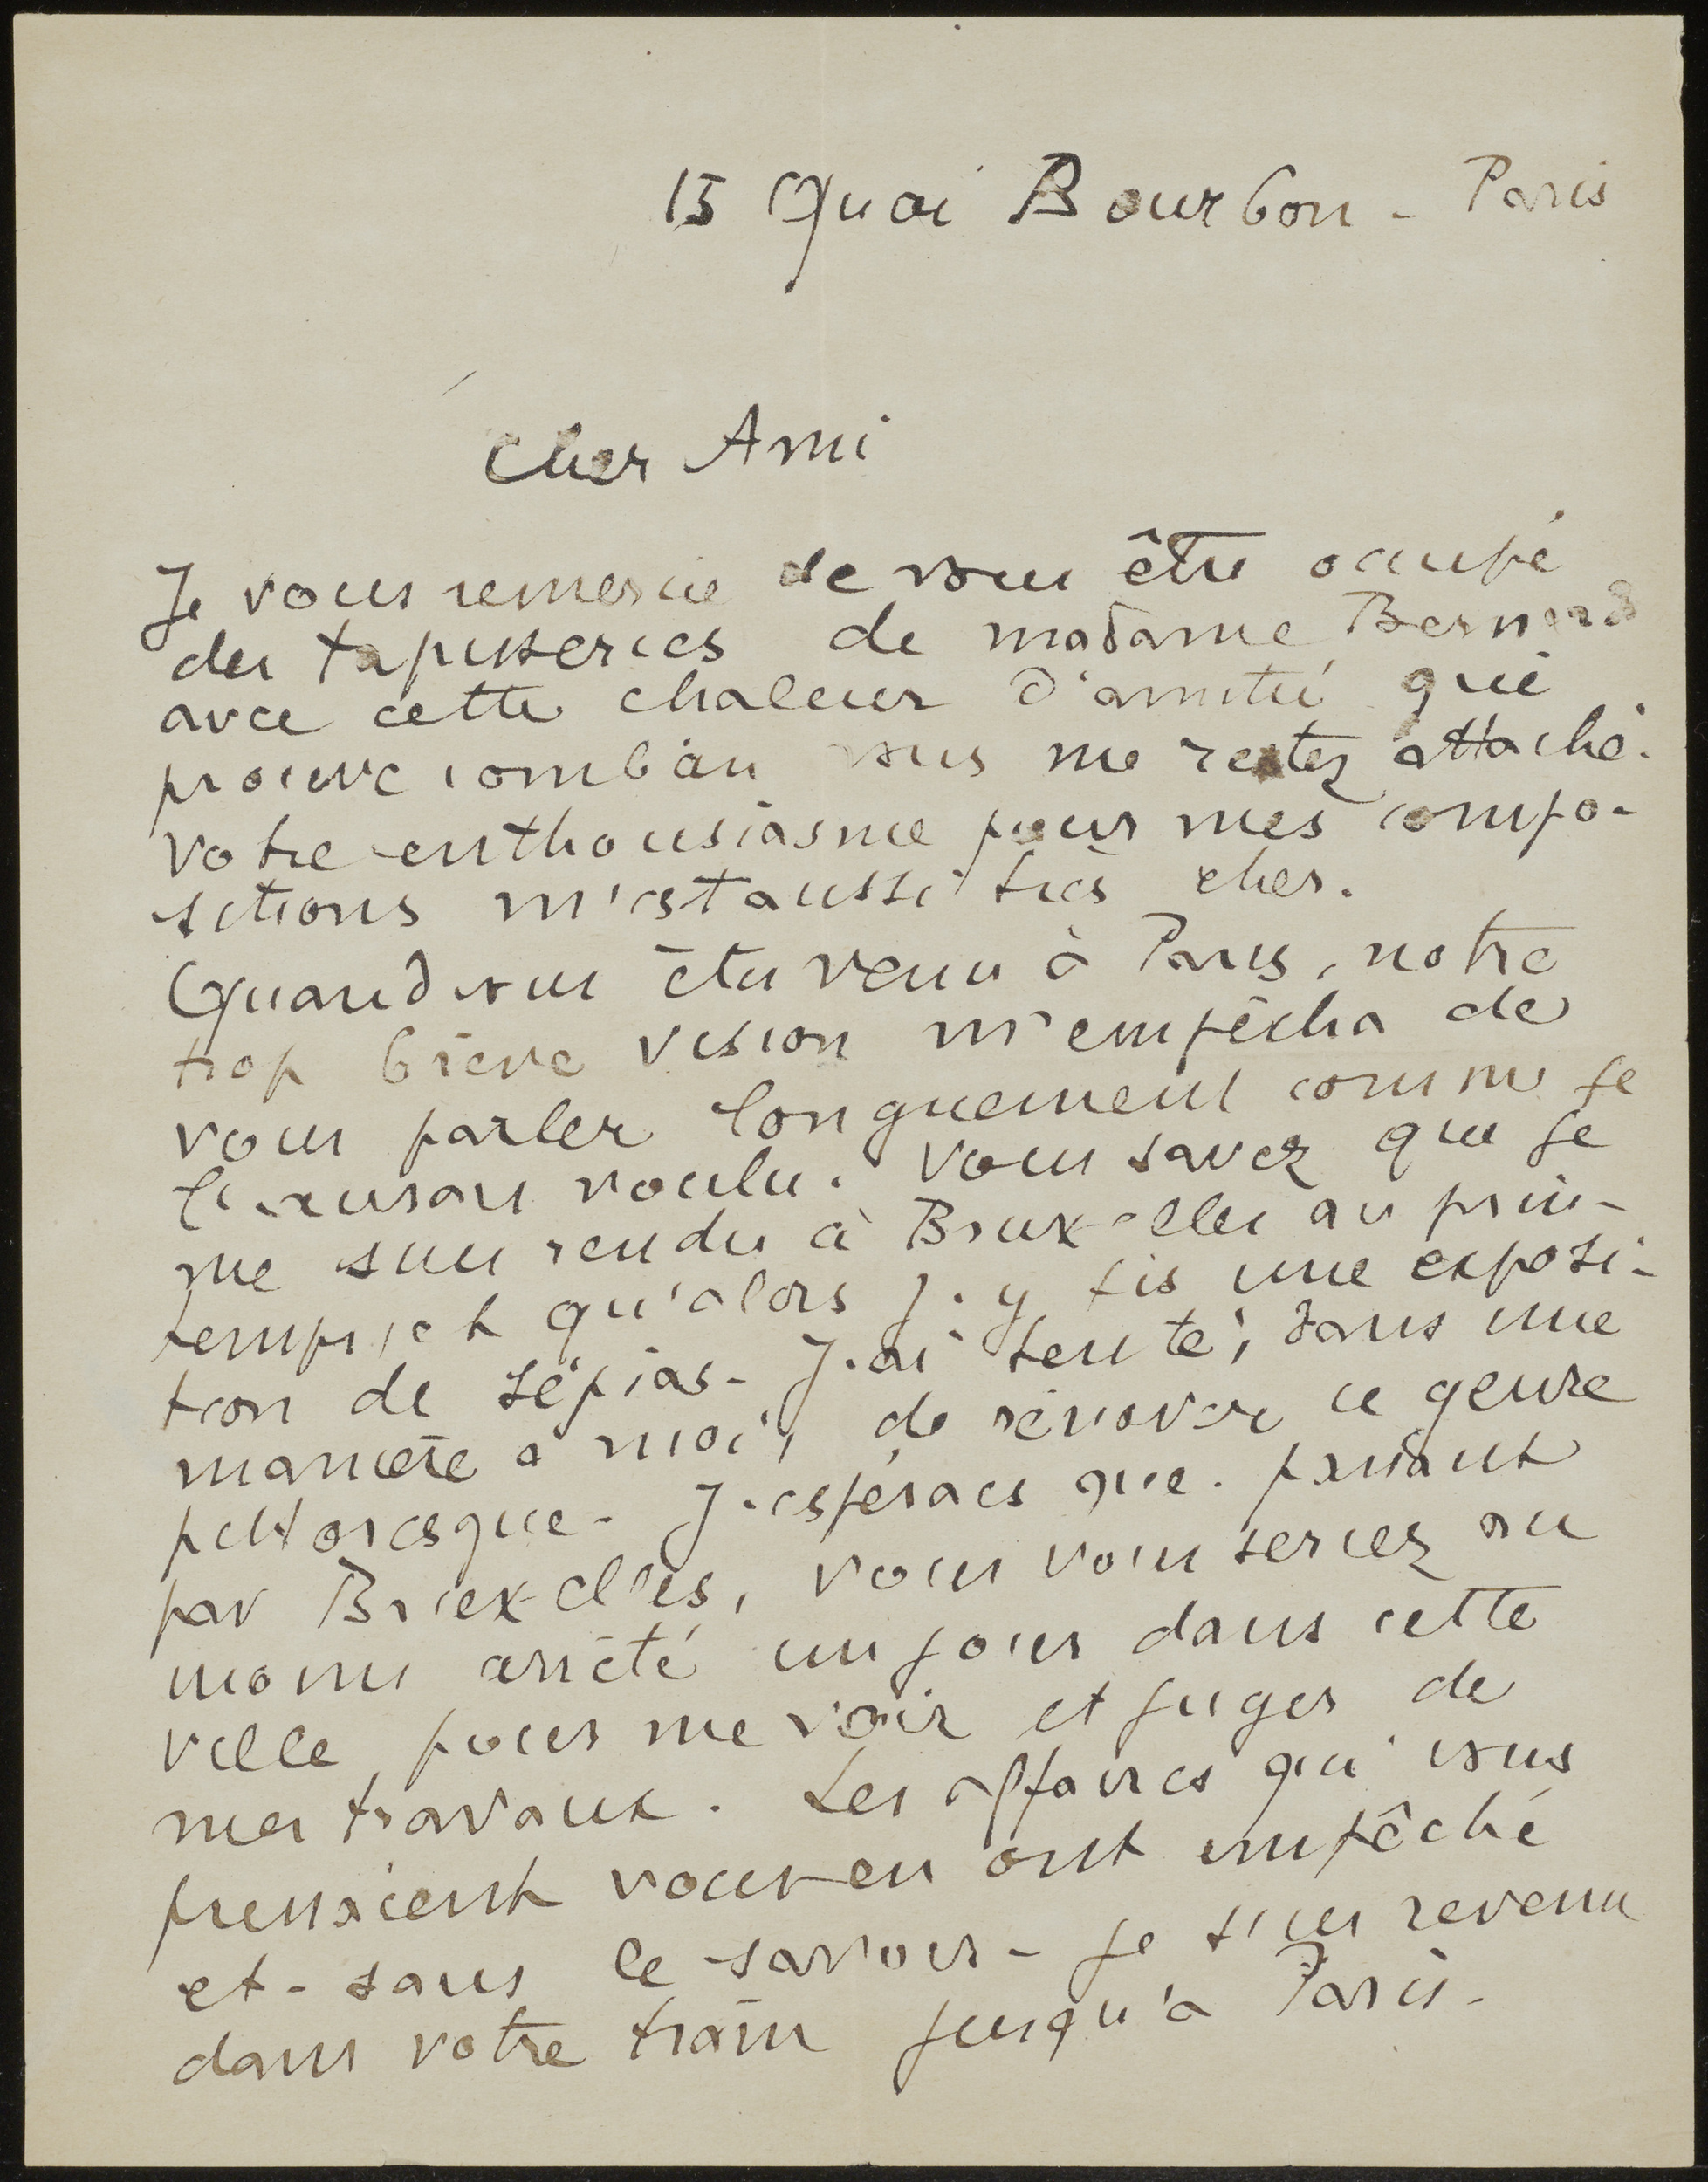 15 Quai Bourbon - Paris
Cher Ami
Je vous remercie de vous être occupé
des tapisseries de madame Bernard
avec cette chaleur d'amitié qui
prouve combien vous me restez attaché.
Votre enthousiasme pour mes compo-
sitions m'est aussi très cher.
Quand vous êtes venu à Paris, notre
trop brève vision m'empêcha de
vous parler longuement comme je
l'eusse voulu. Vous savez que je
me suis rendu à Bruxelles au prin-
temps, et qu'alors j'y fis une exposi-
tion de sépias - J'ai tenté, dans une
manière à moi, de rénover ce genre
pittoresque - J'espérais que passant
par Bruxelles, vous vous seriez au
moins arrêté un jour dans cette
ville pour me voir et juger de
mes travaux. Les affaires qui vous
pressaient vous en ont empêché
et - sans le savoir - je suis revenu
dans votre train jusqu'à Paris.